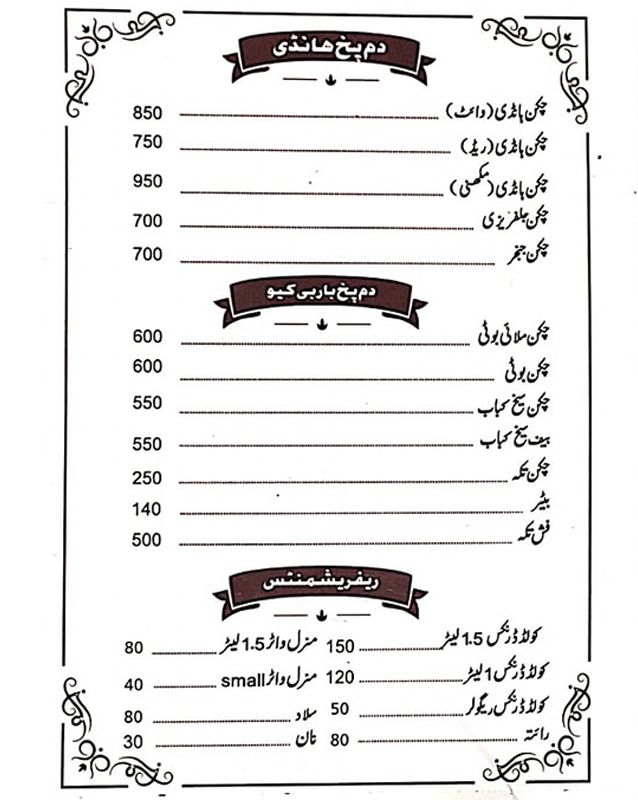 دم پخ ھانڈی
چکن ہانڈی (وائٹ) 850
چکن ہانڈی (ریڈ) 750
چکن ہانڈی (مکھنی) 950
چکن جلفریزی 700
چکن جنجر 700
دم پخ باربی کیو
چکن ملائی بوٹی 600
چکن بوٹی 600
چکن سیخ کباب 550
بیف سیخ کباب 550
چکن تکہ 250
بٹیر 140
فش تکہ 500
ریفریشمنٹس
کولڈ ڈرنکس 1.5 لیٹر 150 منرل واٹر 1.5 لیٹر 80
کولڈ ڈرنکس 1 لیٹر 120 منرل واٹر small 40
کولڈ ڈرنکس ریگولر 50 سلاد 80
رائتہ 80 نان 30